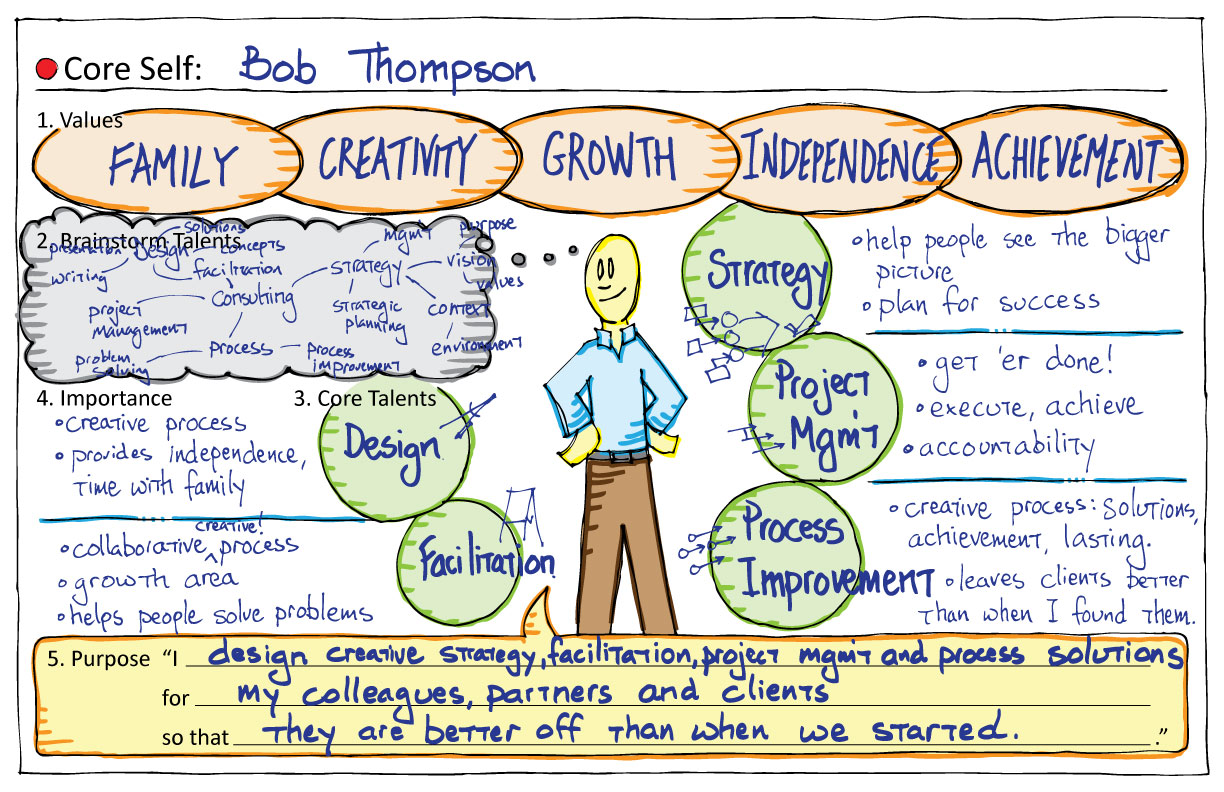 Core Self: Bob Thompson
1. Values
FAMILY
CREATIVITY
GROWTH
INDEPENDENCE
ACHIEVEMENT
2. Brainstorm Talents
solutions
presentation
Design
concepts
writing
facilitation
Consulting
project
management
problem
solving
process
process
improvement
strategy
mgmt
purpose
vision
values
strategic
planning
context
environment
4. Importance
•creative process
• provides independence,
time with family
creative!
•collaborative ^ process
• growth area
•helps people solve problems
3. Core Talents
Design
Facilitation
Strategy
•help people see the bigger
picture
• plan for success
Project
Mgmt
• get 'er done!
•execute, achieve
•accountability
Process
Improvement
• creative process: solutions,
achievement, lasting.
•leaves clients better
than when I found them.
5. Purpose "I design creative strategy, facilitation, project mgmt and process solutions
for my colleagues, partners and clients
so that they are better off than when we started. ."